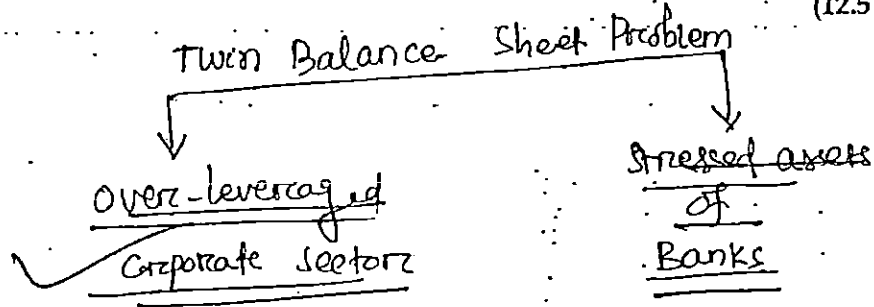 (12.5
Twin Balance Sheet Problem
Over-leveraged
Corporate Sector
Stressed assess
of
Banks